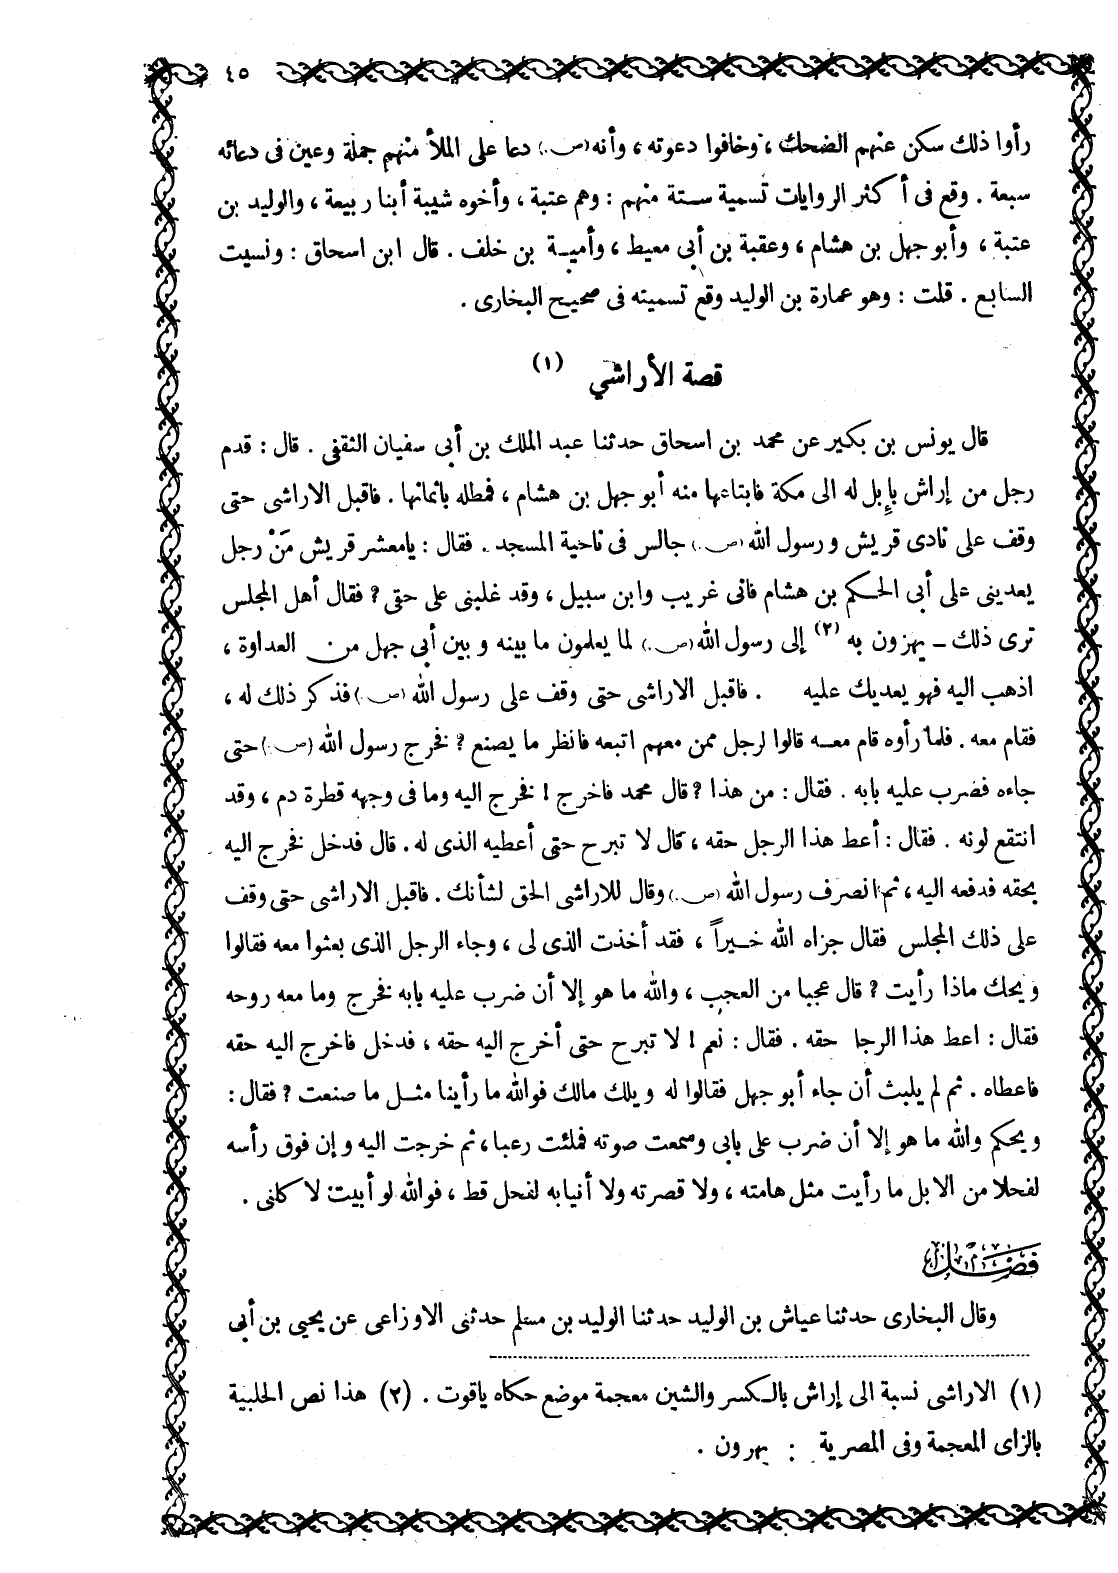 ٤٥
رأوا ذلك سكن عنهم الضحك ، وخافوا دعوته ، وأنه (ص.) دعا على الملأ منهم جملة وعين فى دعائه
سبعة . وقع فى أكثر الروايات تسمية ستة منهم : وهم عتبة ، وأخوه شيبة أبنا ربيعة ، والوليد بن
عتبة ، وأبو جهل بن هشام ، وعقبة بن أبى معيط ، وأمية بن خلف . قال ابن اسحاق : ونسيت
السابع . قلت : وهو عمارة بن الوليد وقع تسميته فى صحيح البخارى .
قصة الأراشي (١)
قال يونس بن بكير عن محمد بن اسحاق حدثنا عبد الملك بن أبى سفيان الثقفى . قال : قدم
رجل من إراش بإبل له الى مكة فابتاعها منه أبو جهل بن هشام ، فمطله بأثمانها . فاقبل الاراشى حتى
وقف على نادى قريش ورسول الله (ص.) جالس فى ناحية المسجد . فقال : يامعشر قريش مَنْ رجل
يعدينى على أبى الحكم بن هشام فانى غريب وابن سبيل ، وقد غلبنى على حقى ? فقال أهل المجلس
ترى ذلك ـ يهزون به (٢) إلى رسول الله (ص.) لما يعلمون ما بينه وبين أبى جهل من العداوة ،
اذهب اليه فهو يعديك عليه . فاقبل الاراشى حتى وقف على رسول الله (ص.) فذكر ذلك له ،
فقام معه . فلما رأوه قام معه قالوا لرجل ممن معهم اتبعه فانظر ما يصنع ? فخرج رسول الله (ص.) حتى
جاءه فضرب عليه بابه . فقال : من هذا ? قال محمد فاخرج ! فخرج اليه وما فى وجهه قطرة دم ، وقد
انتقع لونه . فقال : أعط هذا الرجل حقه ، قال لا تبرح حتى أعطيه الذى له . قال فدخل فخرج اليه
بحقه فدفعه اليه ، ثم انصرف رسول الله (ص.) وقال للاراشى الحق لشأنك . فاقبل الاراشى حتى وقف
على ذلك المجلس فقال جزاه الله خيراً ، فقد أخذت الذى لى ، وجاء الرجل الذى بعثوا معه فقالوا
ويحك ماذا رأيت ? قال عجبا من العجب ، والله ما هو إلا أن ضرب عليه بابه فخرج وما معه روحه
فقال : اعط هذا الرجا حقه . فقال : نعم ! لا تبرح حتى أخرج اليه حقه ، فدخل فاخرج اليه حقه
فاعطاه . ثم لم يلبث أن جاء أبو جهل فقالوا له ويلك مالك فوالله ما رأينا مثل ما صنعت ? فقال :
ويحكم والله ما هو إلا أن ضرب على بابى وسمعت صوته فملئت رعبا ، ثم خرجت اليه وإن فوق رأسه
لفحلا من الابل ما رأيت مثل هامته ، ولا قصرته ولا أنيابه لفحل قط ، فوالله لو أبيت لاكلنى .
فصل
وقال البخارى حدثنا عياش بن الوليد حدثنا الوليد بن مسلم حدثنى الاوزاعى عن يحيى بن أبى
(١) الاراشى نسبة الى إراش بالكسر والشين معجمة موضع حكاه ياقوت . (٢) هذا نص الحلبية
بالزاى المعجمة وفى المصرية : يهرون .